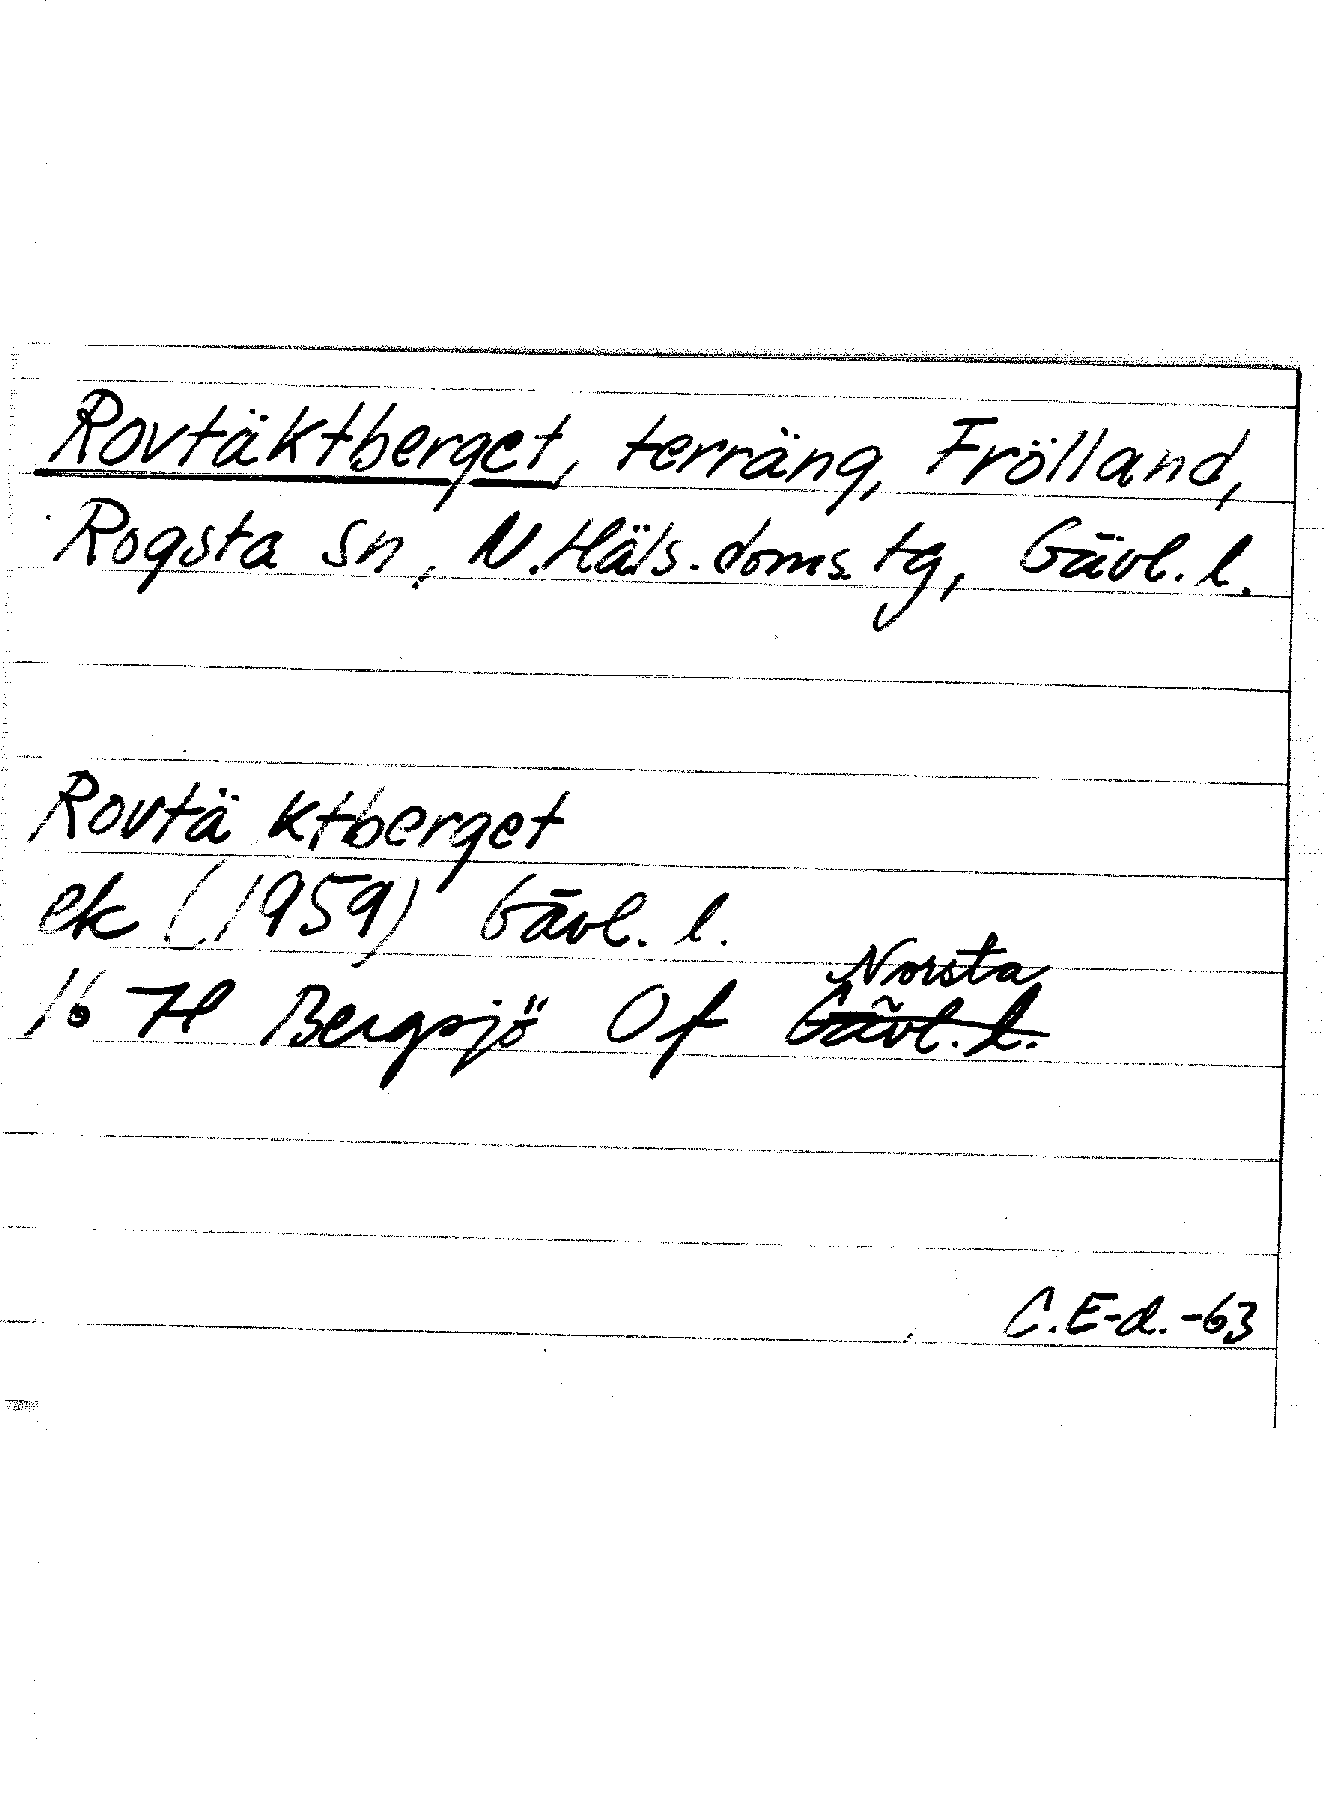 Rovtäktberget, terräng, Frölland,
Rogsta sn, N. Häls. doms. tg, Gävl. l.
Rovtä ktberget
ek (1959) Gävl. l.
16 H Bergsjö Of Norsta
Gävl. l.
C. E-d. -63